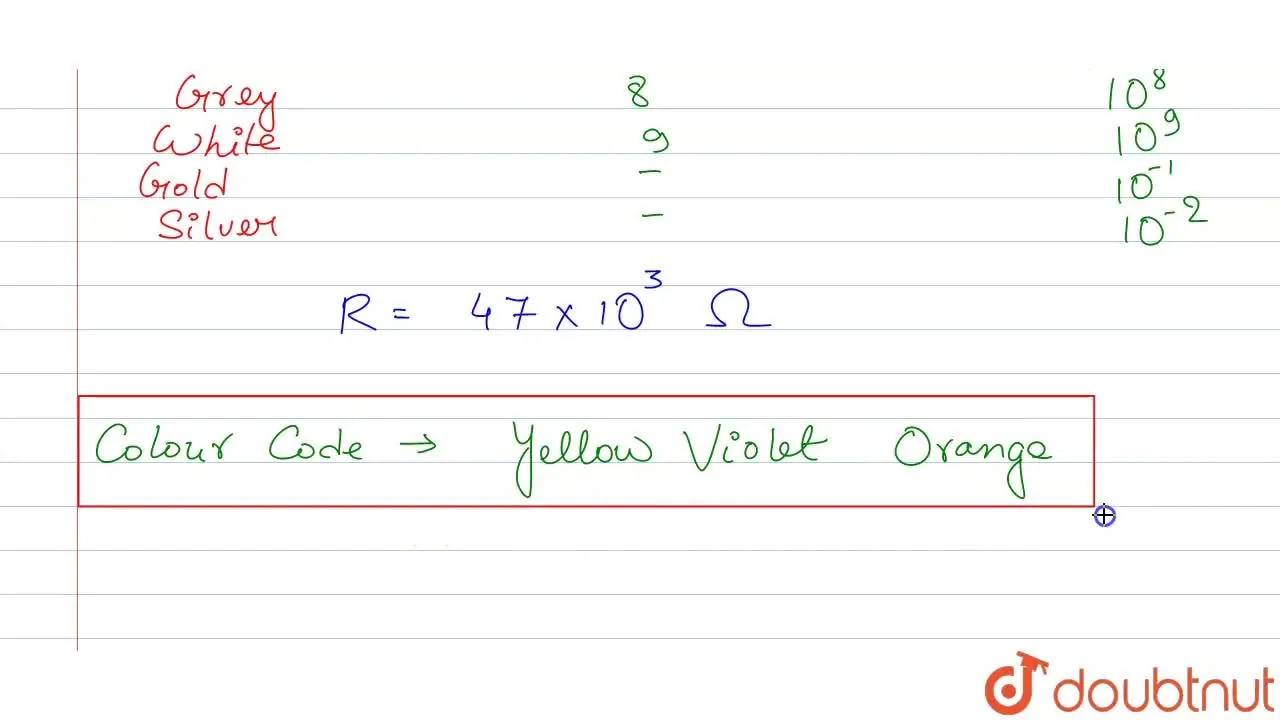 Grey 8 10⁸
White 9 10⁹
Gold - 10⁻¹
Silver - 10⁻²
R = 47 × 10³ Ω
Colour Code → Yellow Violet Orange
doubtnut